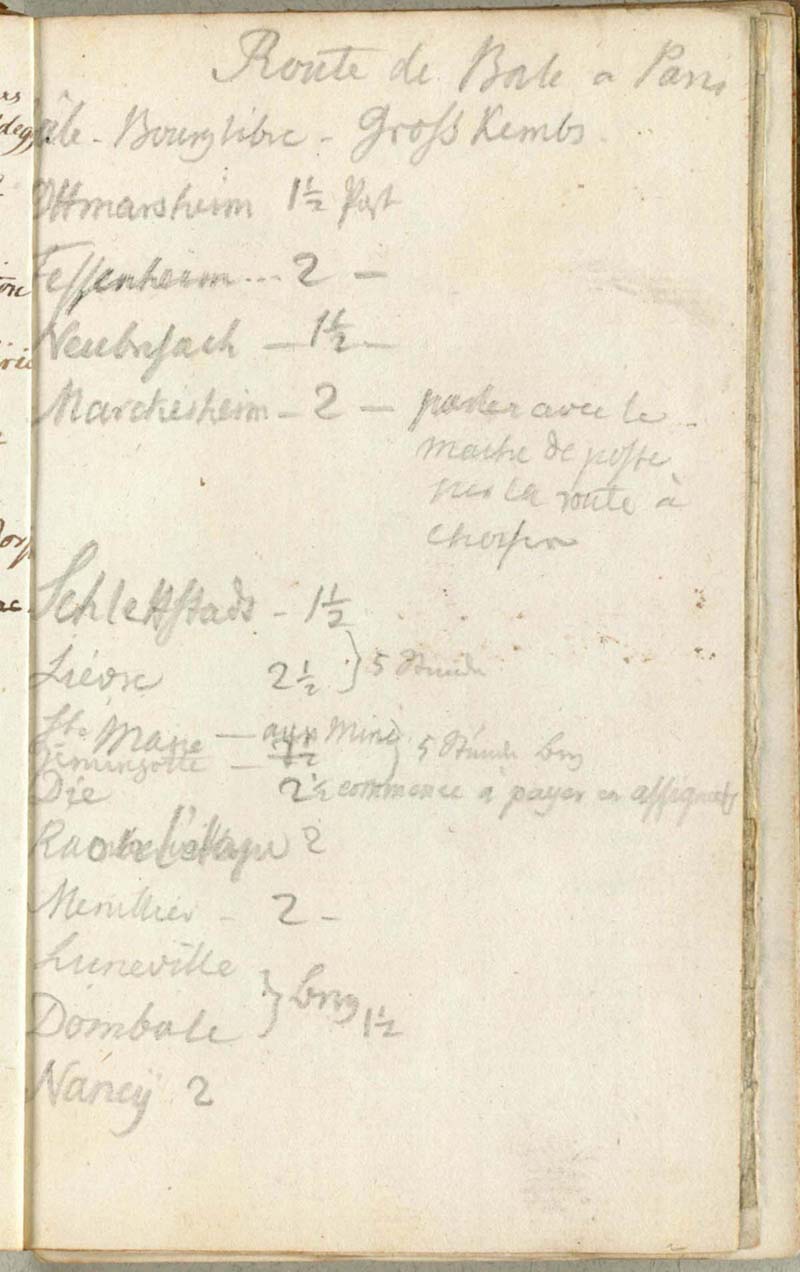 Route de Bale a Paris
Bâle - Bourglibre - Gross Kembs
Ottmarsheim 1½ Post
Fessenheim ... 2 -
Neubrisach - 1½ -
Marckesheim - 2 - parler avec le
maitre de poste
la route à
choisir
Schlettstads - 1½
Liévre 2½ } 5 Stunde
Ste Marie - aux Mines
} 5 Stunde
Die 2½ commence à payer en assignats
Raon l'Etape 2
- 2 -
Luneville
Dombale } 1½
Nancÿ 2